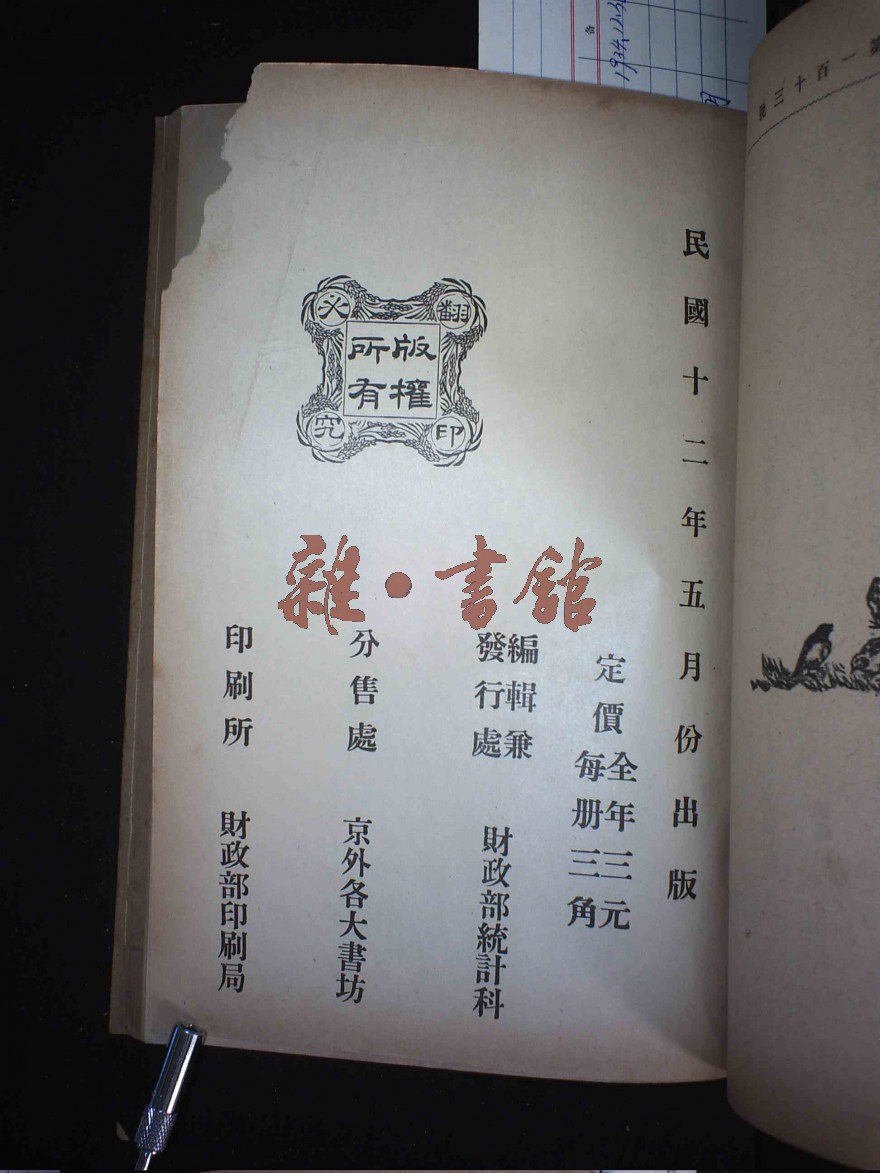 第一百十三號
民國十二年五月份出版
定價全年三元
每册三角
編輯兼
發行處
財政部統計科
分售處
京外各大書坊
印刷所
財政部印刷局
版權
所有
翻印
必究
雜·書館